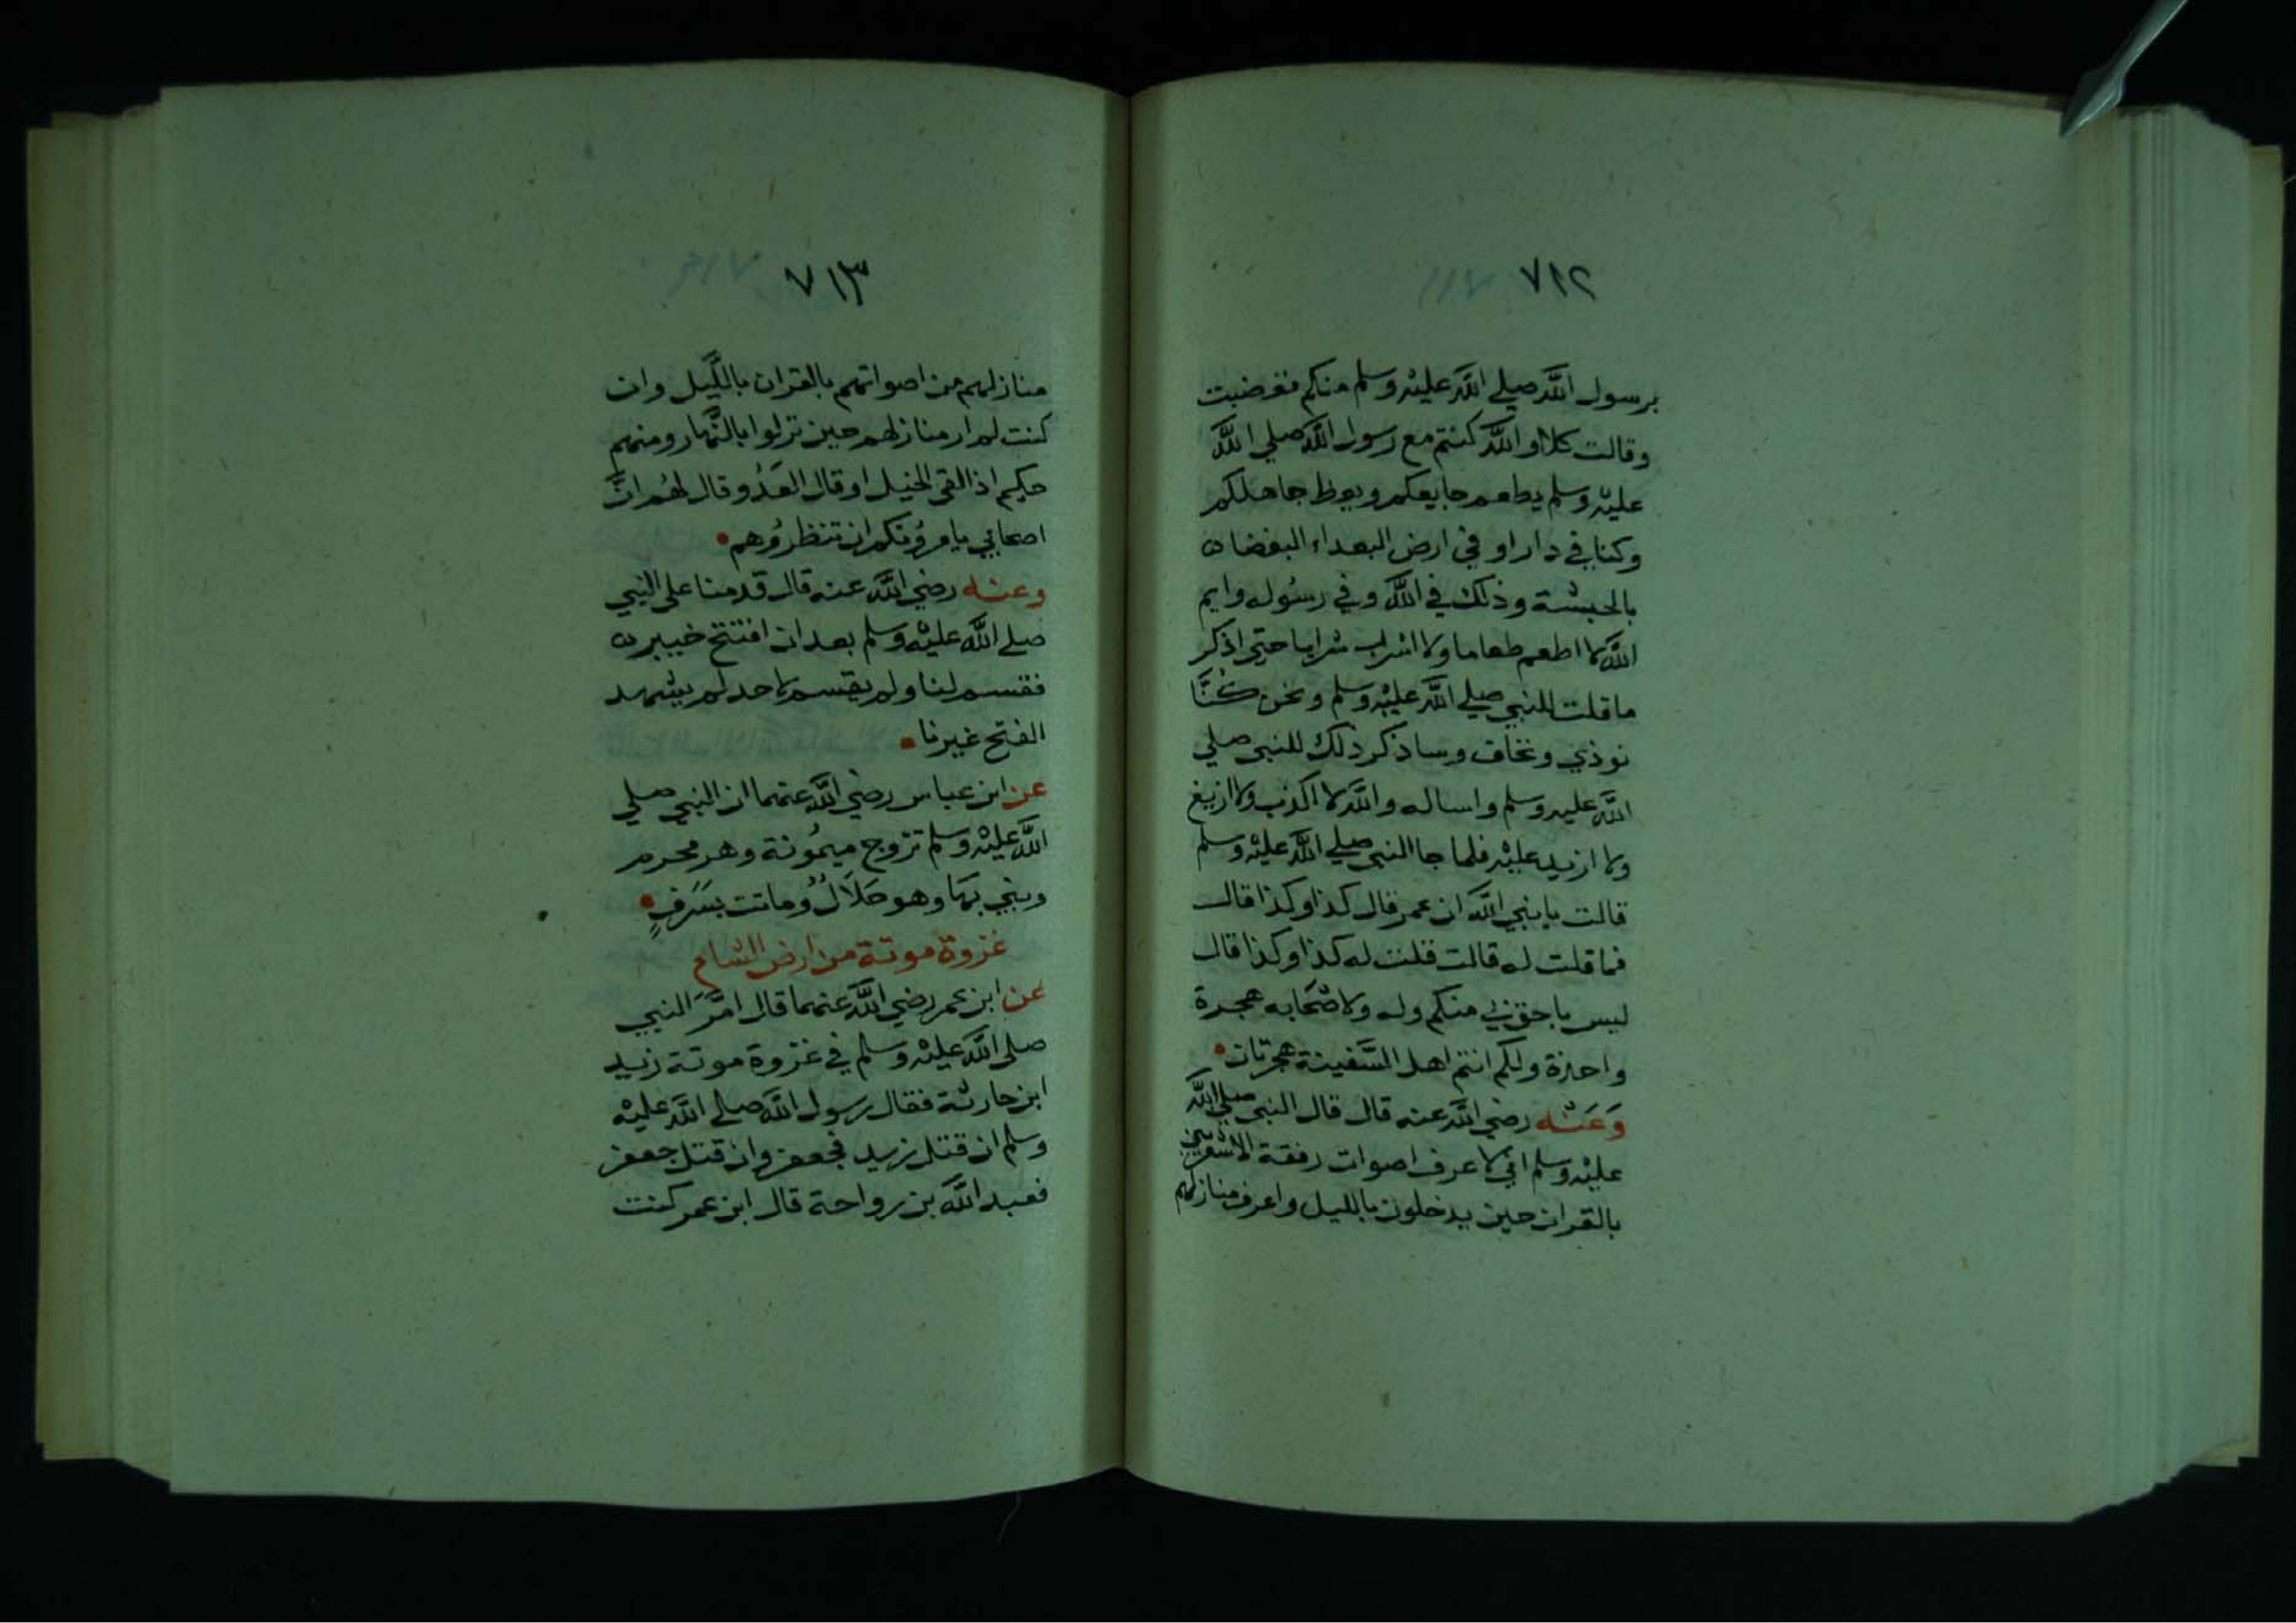 ٧١٢
برسول الله صلي الله عليه وسلم منكم فغضبت
وقالت كلا والله كنتم مع رسول الله صلي الله
عليه وسلم يطعم جايعكم ويعظ جاهلكم
وكنا في دار او في ارض البعداء البغضا
بالحبشة وذلك في الله وفي رسوله وايم
الله لا اطعم طعاما ولا اشرب شرابا حتى اذكر
ما قلت للنبي صلي الله عليه وسلم ونحن كُنَّا
نوذي ونخاف وساذكر ذلك للنبي صلي
الله عليه وسلم واساله والله لا اكذب ولا ازيغ
ولا ازيد عليه فلما جا النبي صلي الله عليه وسلم
قالت يا نبي الله ان عمر قال كذا وكذا قال
فما قلت له قالت قلت له كذا وكذا قال
ليس باحق بي منكم وله ولاصحابه هجرة
واحدة ولكم انتم اهل السَّفينة هجرتان
وَعَنْه رضي الله عنه قال قال النبي صلي الله
عليه وسلم اني لاعرف اصوات رفقة الاشعريين
بالقران حين يدخلون بالليل واعرف منازلهم
٧١٣
منازلهم من اصواتهم بالقران باللَّيل وان
كنت لم ار منازلهم حين نزلوا بالنَّهار ومنهم
حكيم اذا لقي الخيل او قال العَدُو قال لهُم انَّ
اصحابي يامرُونكم ان تنظرُوهم
وعنه رضي الله عنه قال قدمنا على النبي
صلي الله عليه وسلم بعد ان افتتح خيبر
فقسم لنا ولم يقسم لاحد لم يشهد
الفتح غيرنا
عن ابن عباس رضي الله عنهما ان النبي صلي
الله عليه وسلم تزوج ميمُونة وهو محرم
وبني بهَا وهو حَلَالٌ وماتت بسَرَفٍ
غزوة موتة من ارض الشام
عن ابن عمر رضي الله عنهما قال امَّرَ النبي
صلى الله عليه وسلم في غزوة موتة زيد
ابن حارثة فقال رسول الله صلي الله عليه
وسلم ان قتل زيد فجعفر وان قتل جعفر
فعبد الله بن رواحة قال ابن عمر كنت